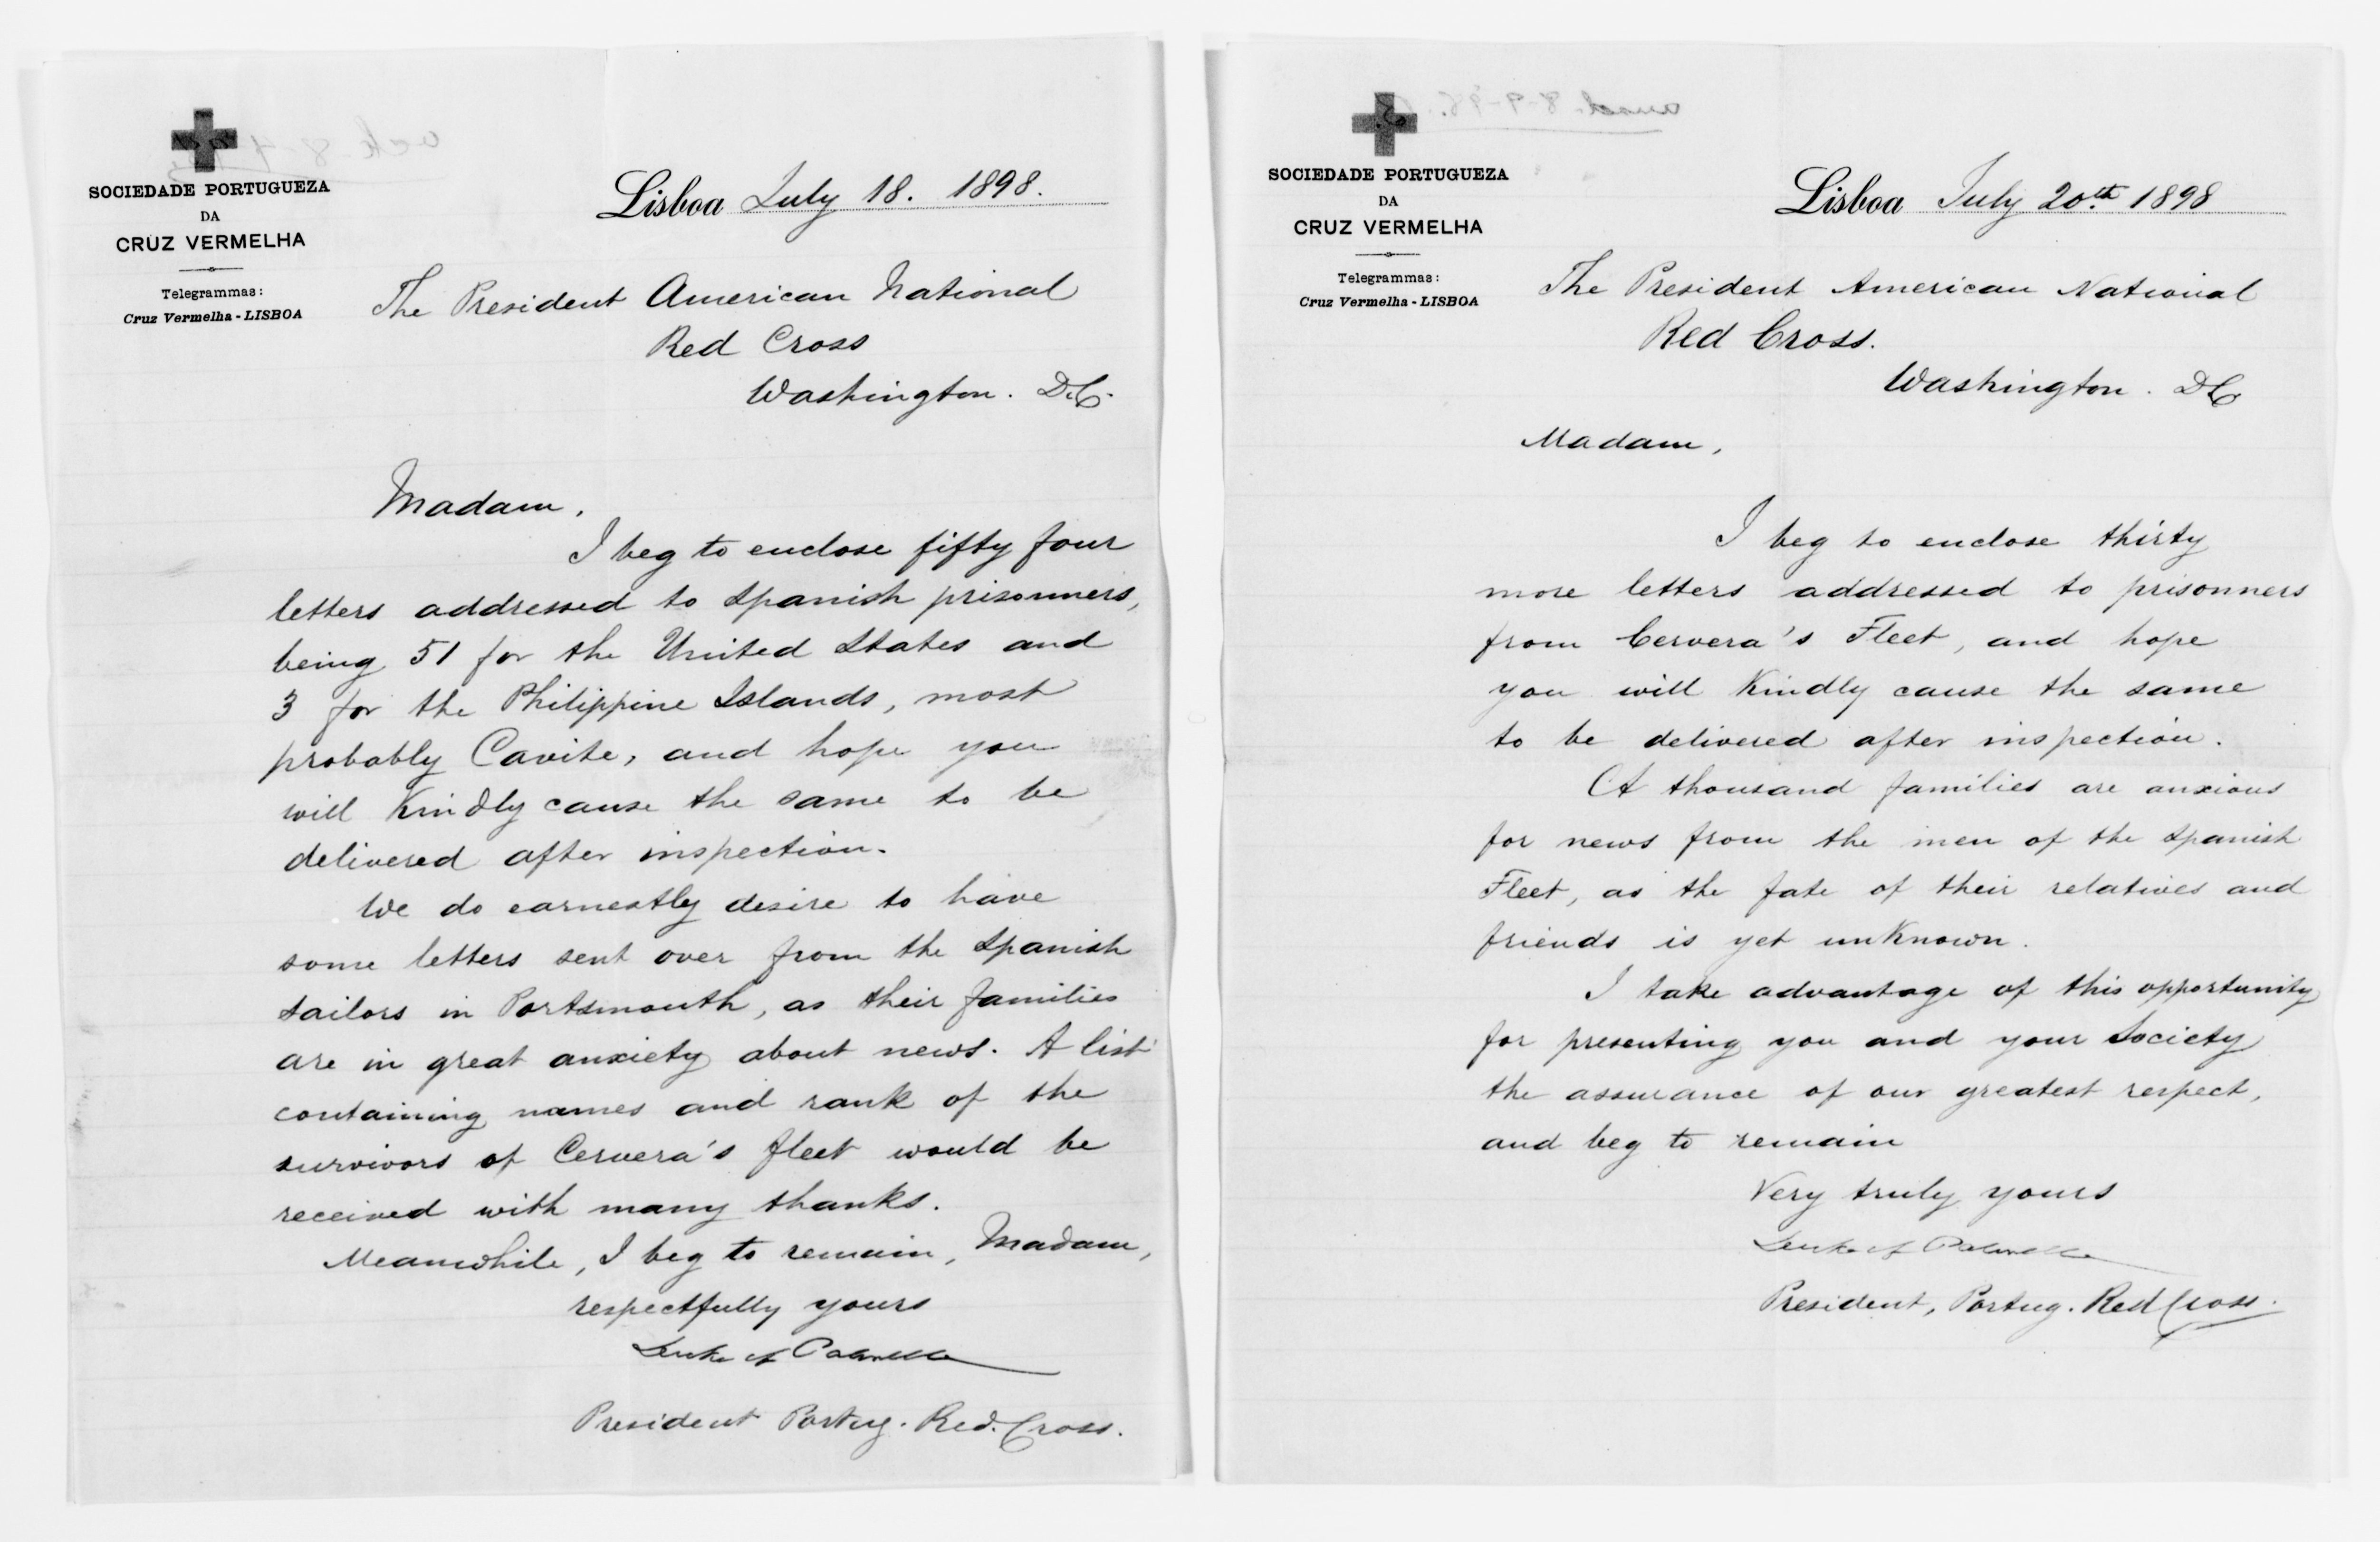 SOCIEDADE PORTUGUEZA
DA
CRUZ VERMELHA
Telegrammas:
Cruz Vermelha - LISBOA
Lisboa July 18. 1898.
The President American National
Red Cross
Washington. D.C.
Madam,
I beg to enclose fifty four
letters addressed to Spanish prisonners,
being 51 for the United States and
3 for the Philippine Islands, most
probably Cavite, and hope you
will Kindly cause the same to be
delivered after inspection.
We do earnestly desire to have
some letters sent over from the Spanish
sailors in Portsmouth, as their families
are in great anxiety about news. A list
containing names and rank of the
survivors of Cervera's fleet would be
received with many thanks.
Meanwhile, I beg to remain, Madam,
respectfully yours
Duke of Palmella
President Portug. Red. Cross.
SOCIEDADE PORTUGUEZA
DA
CRUZ VERMELHA
Telegrammas:
Cruz Vermelha - LISBOA
Lisboa July 20th 1898
The President American National
Red Cross.
Washington. DC
Madam,
I beg to enclose thirty
more letters addressed to prisonners
from Cervera's Fleet, and hope
you will Kindly cause the same
to be delivered after inspection.
A thousand families are anxious
for news from the men of the Spanish
Fleet, as the fate of their relatives and
friends is yet unKnown.
I take advantage of this opportunity
for presenting you and your Society
the assurance of our greatest respect,
and beg to remain
Very truly yours
Duke of Palmella
President, Portug. Red Cross.